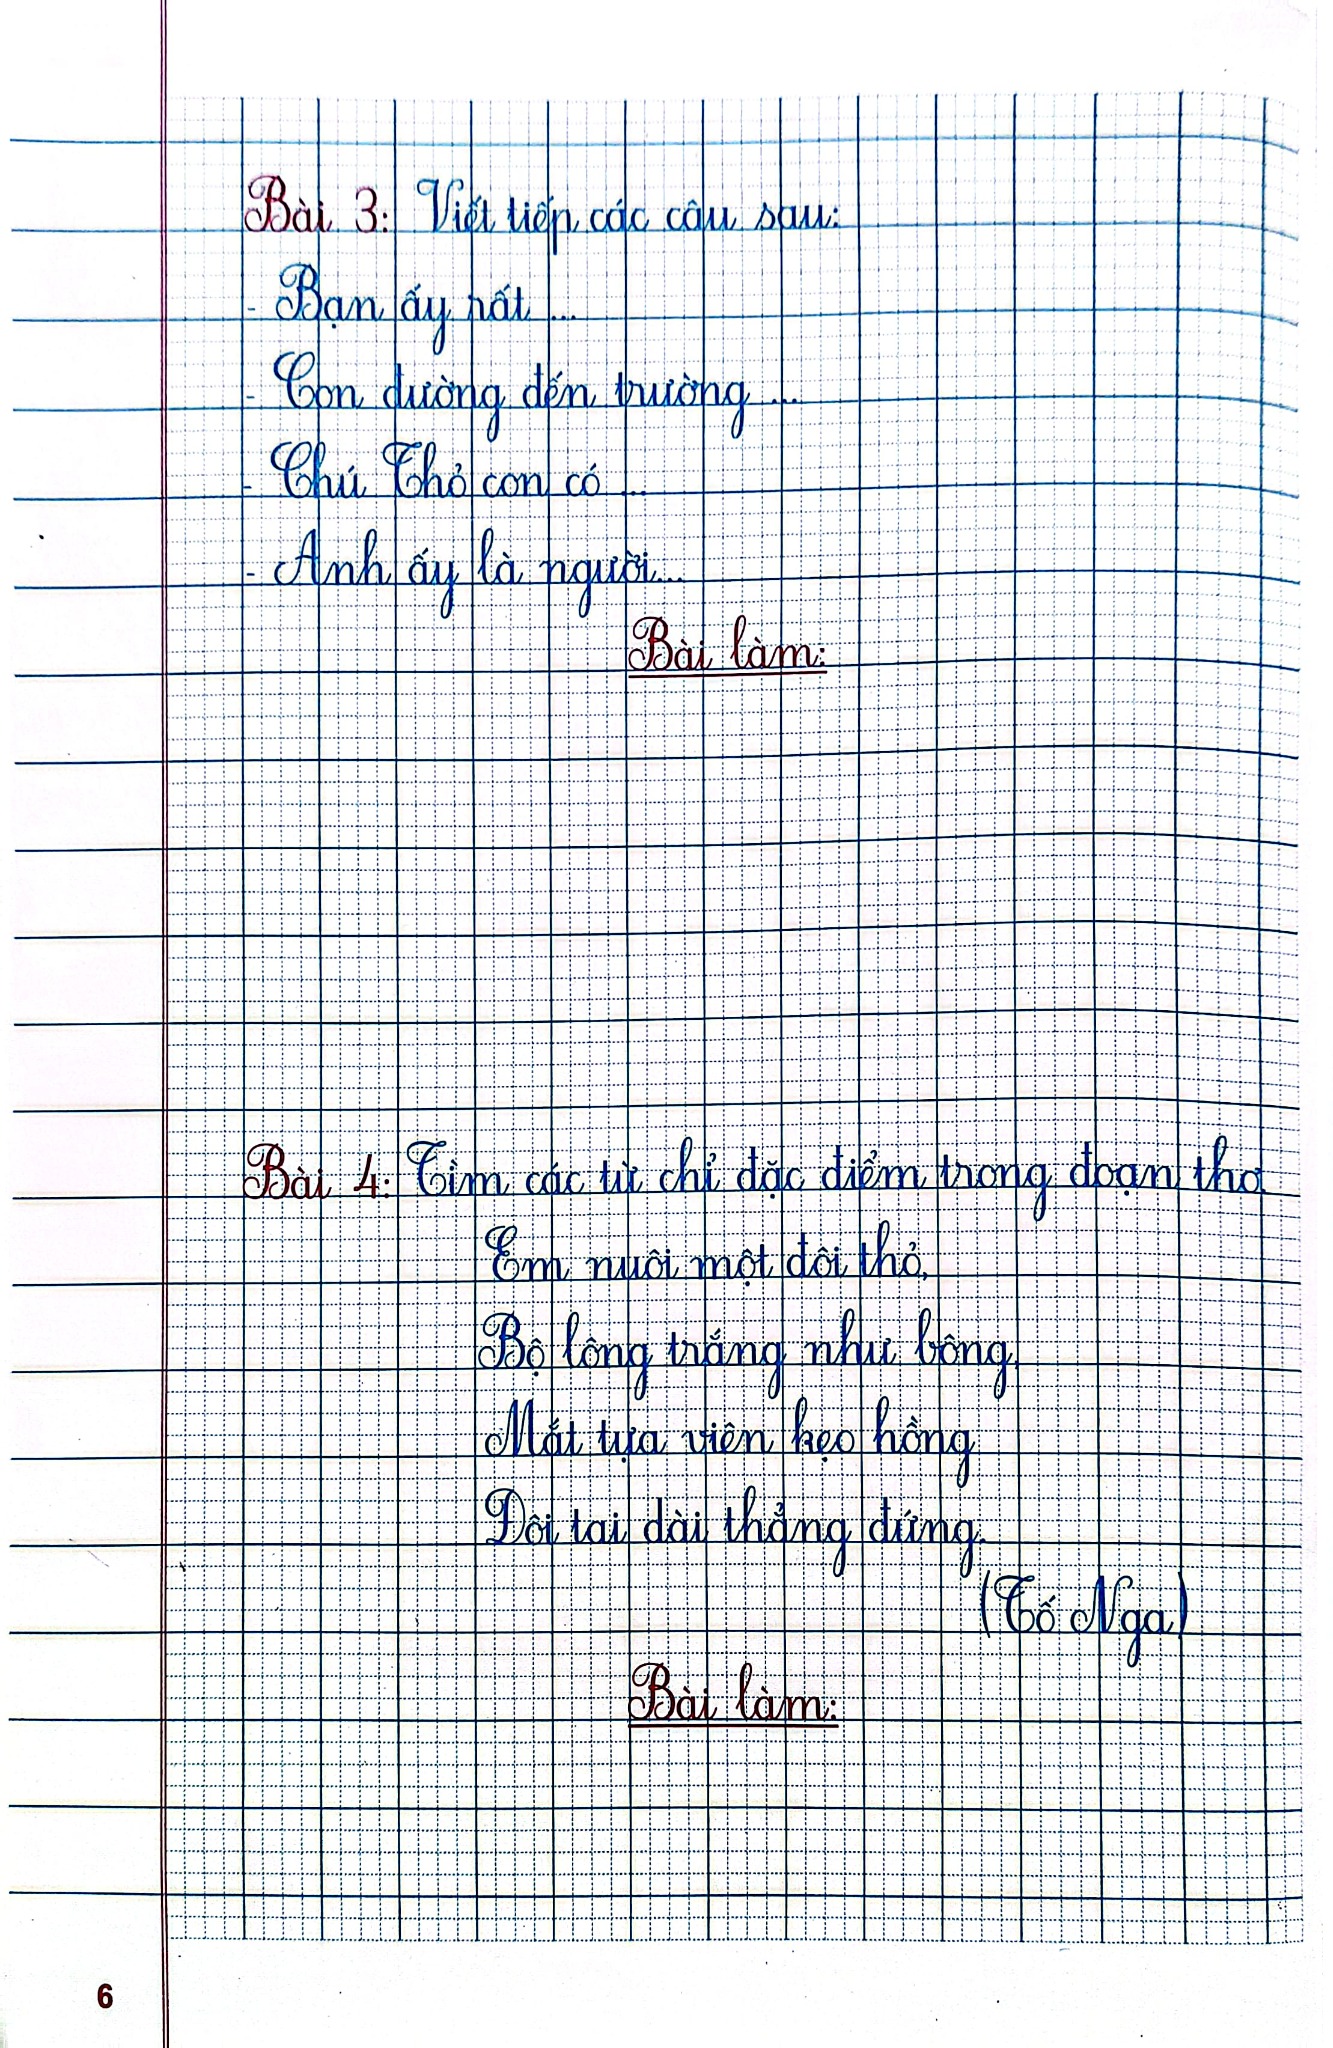 Bài 3: Viết tiếp các câu sau:
- Bạn ấy rất ...
- Con đường đến trường ...
- Chú Thỏ con có ...
- Anh ấy là người...
Bài làm:
Bài 4: Tìm các từ chỉ đặc điểm trong đoạn thơ
Em nuôi một đôi thỏ,
Bộ lông trắng như bông,
Mắt tựa viên kẹo hồng
Đôi tai dài thẳng đứng.
(Tố Nga)
Bài làm:
6